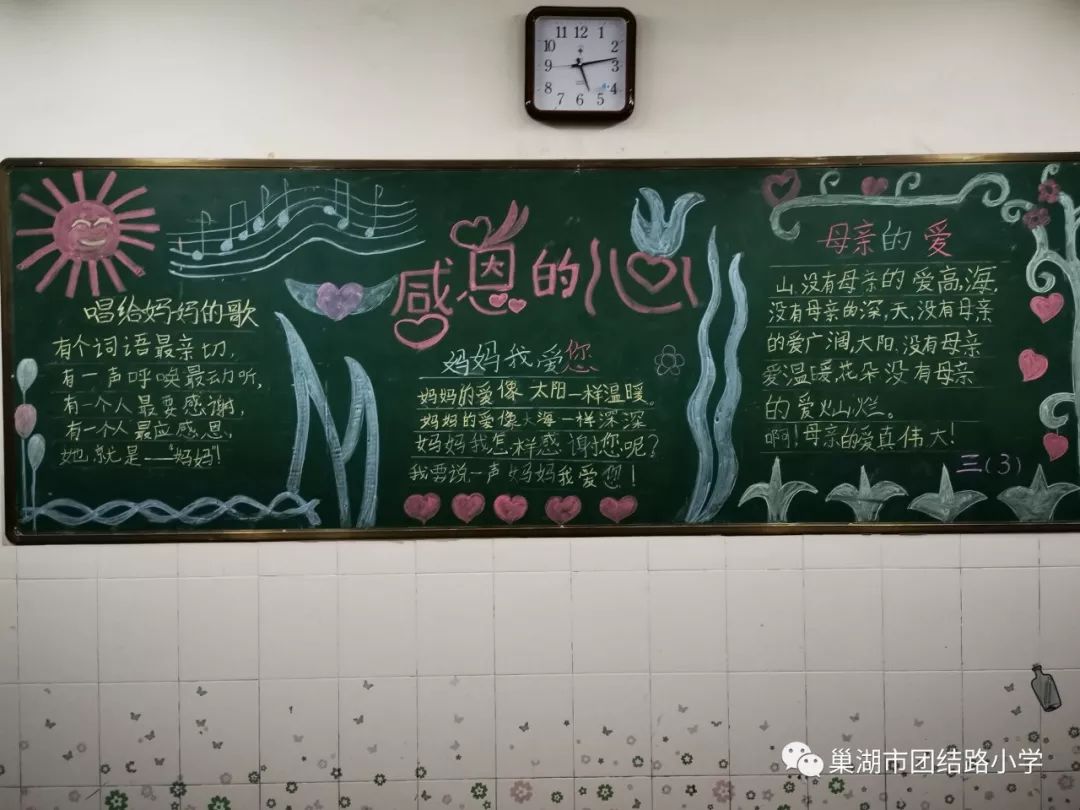 11 12 1
10 2
9 3
8 4
7 6 5
感恩的心
唱给妈妈的歌
有个词语最亲切,
有一声呼唤最动听,
有一个人最要感谢,
有一个人最应感恩,
她,就是——"妈妈"!
妈妈我爱您
妈妈的爱像太阳一样温暖。
妈妈的爱像大海一样深深
妈妈我怎样感谢您呢?
我要说一声妈妈我爱您!
母亲的爱
山,没有母亲的爱高,海,
没有母亲的深,天,没有母亲
的爱广阔,太阳,没有母亲
爱温暖,花朵,没有母亲
的爱灿烂。
啊!母亲的爱真伟大!
三(3)
巢湖市团结路小学